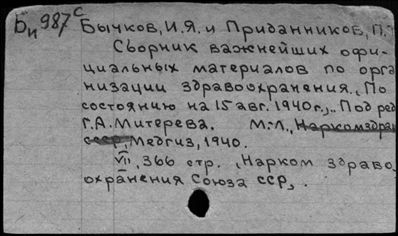 Би 987 с Бычков, И.Я. и Приданников, П.
Сборник важнейших офи-
циальных материалов по орга
низации здравоохранения „По
состоянию на 15 авг. 1940 г.„. Под ред
Г.А. Митерева. М.-Л., Наркомздрав
ссср, Медгиз, 1940.
VII, 366 стр. „Нарком здраво
охранения Союза ССР„.